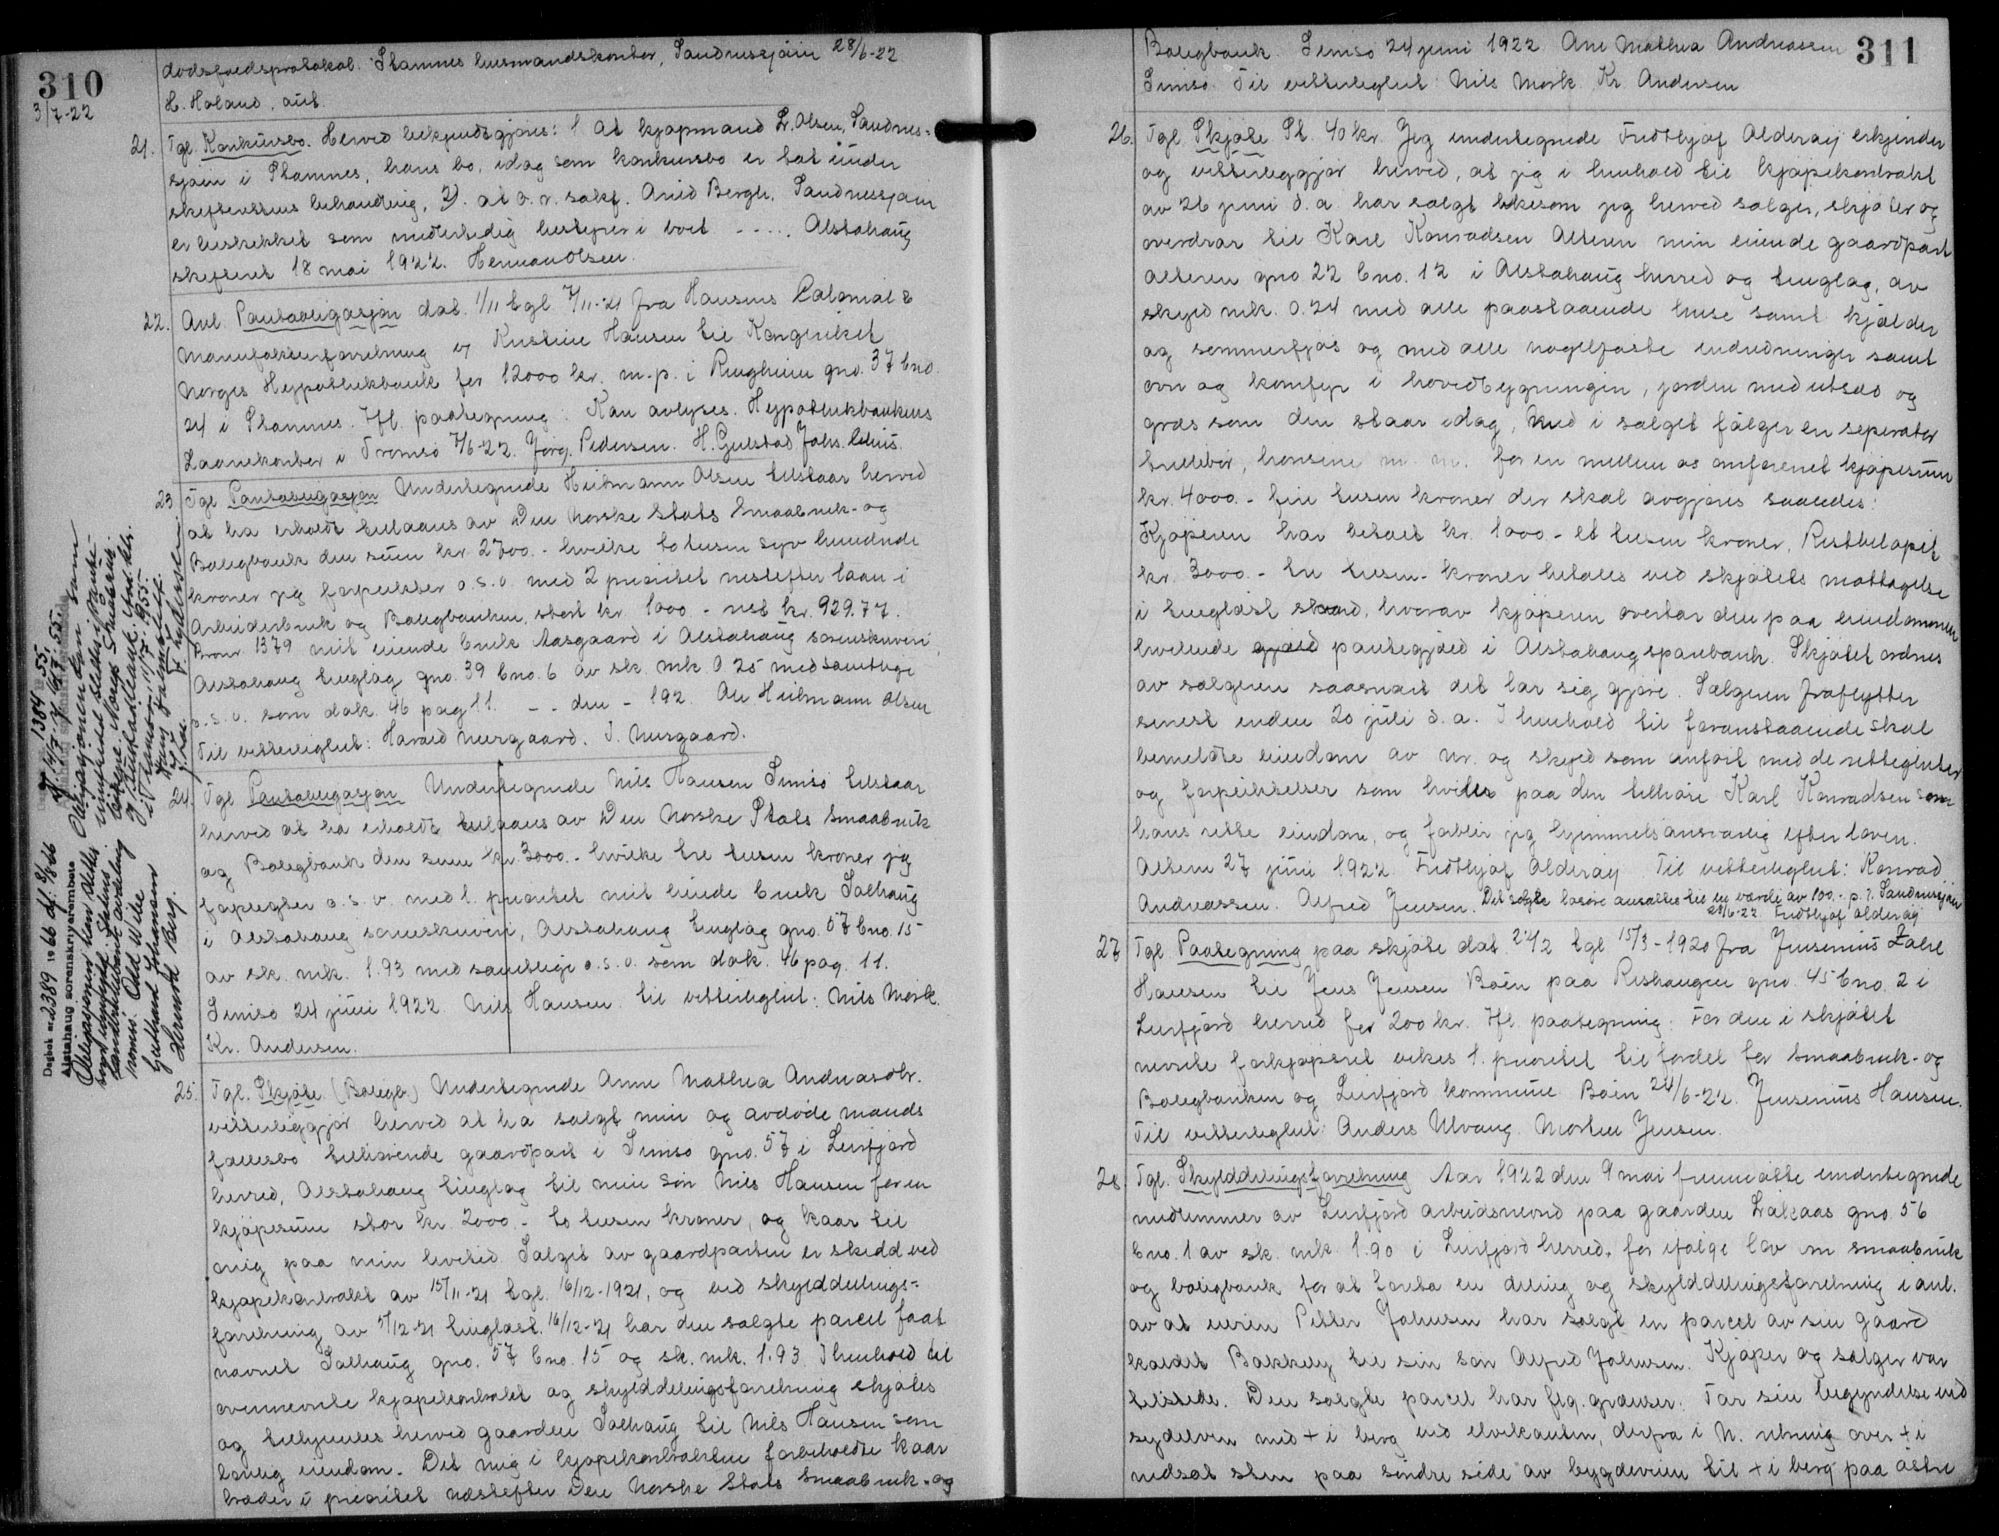 310
3/7-22
dødsfaldsprotokol. Stamnes lensmandskontor, Sandnessjøen 28/6-22
H. Høland, aut.
21. Tgl. Konkursbo. Herved bekjendtgjøres: 1 At kjøpmand L. Olsen, Sandnes-
sjøen i Stamnes, hans bo, idag som konkursbo er tat under
skifterettens behandling, 2). at o.r. sakf. Arvid Bergh, Sandnessjøen
er beskikket som midlertidig bestyrer i boet - - - . . Alstahaug
skifteret 18 mai 1922. Herman Olsen.
22. Avl. Pantobligasjon dat. 1/11 tgl. 7/11-21 fra Hansens Colonial &
Manufakturforretning v/ Kristine Hansen til Kongeriket
Norges Hypothekbank for 12000 kr. m.p. i Ringheim gno. 37 bno.
24 i Stamnes. Ifl. paategning: Kan avlyses. Hypothekbankens
Laanekontor i Tromsø 7/6-22. Jørg. Pedersen. H. Gulstad Johs.
23 Tgl Pantobligasjon Undertegnede Hilmann Olsen tilstaar herved
at ha erholdt tillaans av Den Norske Stats Smaabruk- og
Boligbank den sum kr. 2700.- hvilke to tusen syv hundrede
kroner jeg forplikter o.s.v. med 2 prioritet nestefter laan i
Arbeiderbruk og Boligbanken, stort kr. 1000 - rest kr. 929.77.
Pronr 1379 mit eiende bruk Aasgaard i Alstahaug sorenskriveri,
Alstahaug tinglag gno. 39 bno. 6 av sk. mk 0.25 med samtlige
o.s.v. som dok. 46 pag 11. - - den - 192. Ole Hilmann Olsen
Til vitterlighet: Harald Neergaard. J. Neergaard.
24. Tgl Pantobligasjon Undertegnede Nils Hansen Simsø tilstaar
herved at ha erholdt tillaans av Den Norske Stats Smaabruk
og Boligbank den sum kr. 3000.- hvilke tre tusen kroner jeg
forpligter o.s.v. med 1. prioritet mit eiende bruk Solhaug
i Alstahaug sorenskriveri, Alstahaug tinglag gno. 57 bno. 15
av sk. mk. 1.93 med samtlige o.s.v. som dok. 46 pag. 11.
Simsø 24 juni 1922 Nils Hansen til vitterlighet: Nils Mork.
Kr. Andersen.
25. Tgl. Skjøte (Boligb.) Undertegnede Anne Mathea Andreasdtr.
vitterliggjør herved at ha solgt min og avdøde mands
fællesbo tilhørende gaardpart i Simsø gno. 57 i Leirfjord
herred, Alstahaug tinglag til min søn Nils Hansen for en
kjøpesum stor kr. 2000.- to tusen kroner, og kaar til
mig paa min levetid. Salget av gaardparten er skedd ved
kjøpekontrakt av 15/11-21 tgl. 16/12-1921, og ved skylddelings-
forretning av 5/12-21 tinglæst. 16/12-21 har den solgte parcel faat
navnet Solhaug gno. 57 bno. 15 og sk. mk. 1.93. I henhold til
ovennevnte kjøpekontrakt og skylddelingsforretning skjøtes
og tilhjemles herved gaarden Solhaug til Nils Hansen som
lovlig eiendom. Det mig i kjøpekontrakten forbeholdte kaar
træder i prioritet næstefter Den Norske Stats Smaabruk- og
1354 55
Obligasjonen kan som
innfridd slettes i pante-
bøkene. Norges Småbruk-
og Bustadbank. Avd. ktr.
i Tromsø. 11/7-1955.
Dagbok nr 2389 1966 df. 8/8 66
Alstahaug sorenskriverembete
Obligasjonen kan slettes
romsø. Odd Wike
Gudmund Johansen
311
Boligbank. Simsø 24 juni 1922 Ane Mathea Andreassen
Simsø. Til vitterlighet Nils Mork Kr. Andersen
26. Tgl Skjøte St. 40 kr. Jeg undertegnede Fridthjof Alderøy erkjender
og vitterliggjør herved, at jeg i henhold til kjøpekontrakt
av 26 juni d.a. har solgt likesom jeg herved sælger, skjøter og
overdrar til Karl Konradsen Alteren min eiende gaardpart
Alteren gno 22 bno. 12 i Alstahaug herred og tinglag, av
skyld mk. 0.24 med alle paastaaende huse samt kjelder
og sommerfjøs og med alle nagelfaste indredninger samt
ovn og komfyr i hovedbygningen, jorden med utsæd og
græs som den staar idag, Med i salget følger en seperator
trillebør, hønsene m. m. for en mellem os omforenet kjøpesum
kr. 4000.- fire tusen kroner der skal avgjøres saaledes:
Kjøperen har betalt kr. 1000 - et tusen kroner, Restbeløpet
kr. 3000.- tre tusen - kroner betales ved skjøtets mottagelse
i tinglæst stand, hvorav kjøperen overtar den paa eiendommen
hvilende gjæld pantegjæld i Alstahaug sparebank. Skjøtet ordnes
av sælgeren saasnart det lar sig gjøre. Sælgeren fraflytter
senest inden 20 juli d.a. I henhold til foranstaaende skal
bemeldte eiendom av nr. og skyld som anført med de rettigheter
og forpliktelser som hviler paa den tilhøre Karl Konradsen som
hans rette eiendom, og forblir jeg hjemmelsansvarlig efter loven.
Alteren 27 juni 1922 Fridthjof Alderøy Til vitterlighet: Konrad
Andreassen. Alfred Jensen. Det solgte løsøre ansættes til en værdi av 100.- p. t. Sandnessjøen
28/6-22. Fridthjof Alderøy
27 Tgl. Paategning paa skjøte dat. 24/2 tgl 15/3-1920 fra Jensenius Zahl
Hansen til Jens Jensen Båen paa Rishaugen gno. 45 bno. 2 i
Leirfjord herred for 200 kr. Ifl paategning: For den i skjøtet
nevnte forkjøpsret vikes 1. prioritet til fordel for Smaabruk- og
Boligbanken og Leirfjord kommune Båen 24/6-22. Jensenius Hansen.
Til vitterlighet: Anders Ulvang. Morten Jensen.
28 Tgl. Skylddelingsforretning Aar 1922 den 9 mai fremmøtte undertegnede
medlemmer av Leirfjord arbeidsnevnd paa gaarden Lækaas gno. 56
bno. 1 av sk. mk. 1.90 i Leirfjord herred, for ifølge lov om smaabruk
og boligbank for at foreta en deling og skylddelingsforretning i anl.
av at eieren Petter Johnsen har solgt en parcel av sin gaard
kaldet Bakkely til sin søn Alfred Johnsen. Kjøper og sælger var
tilstede. Den solgte parcel har flg. grænser: Tar sin begyndelse ved
sydelven med + i berg ved elvekanten, derfra i N. retning over + i
nedsat sten paa søndre side av bygdeveien til + i berg paa østre